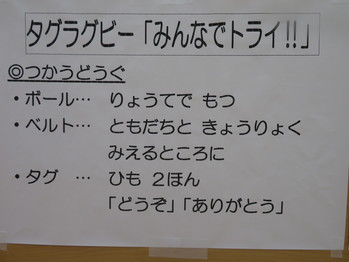 タグラグビー「みんなでトライ!!」
◎つかうどうぐ
・ボール… りょうてで もつ
・ベルト… ともだちと きょうりょく
みえるところに
・タグ … ひも 2ほん
「どうぞ」「ありがとう」